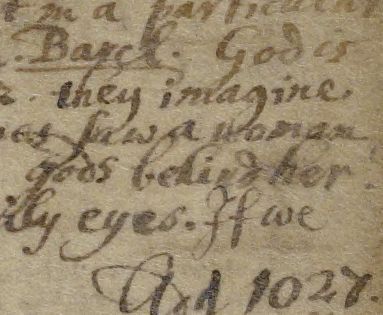 in a particular
. Barcl. God is
. they imagine.
saw a woman
gods behind her.
ily eyes. If we
Add 1027.